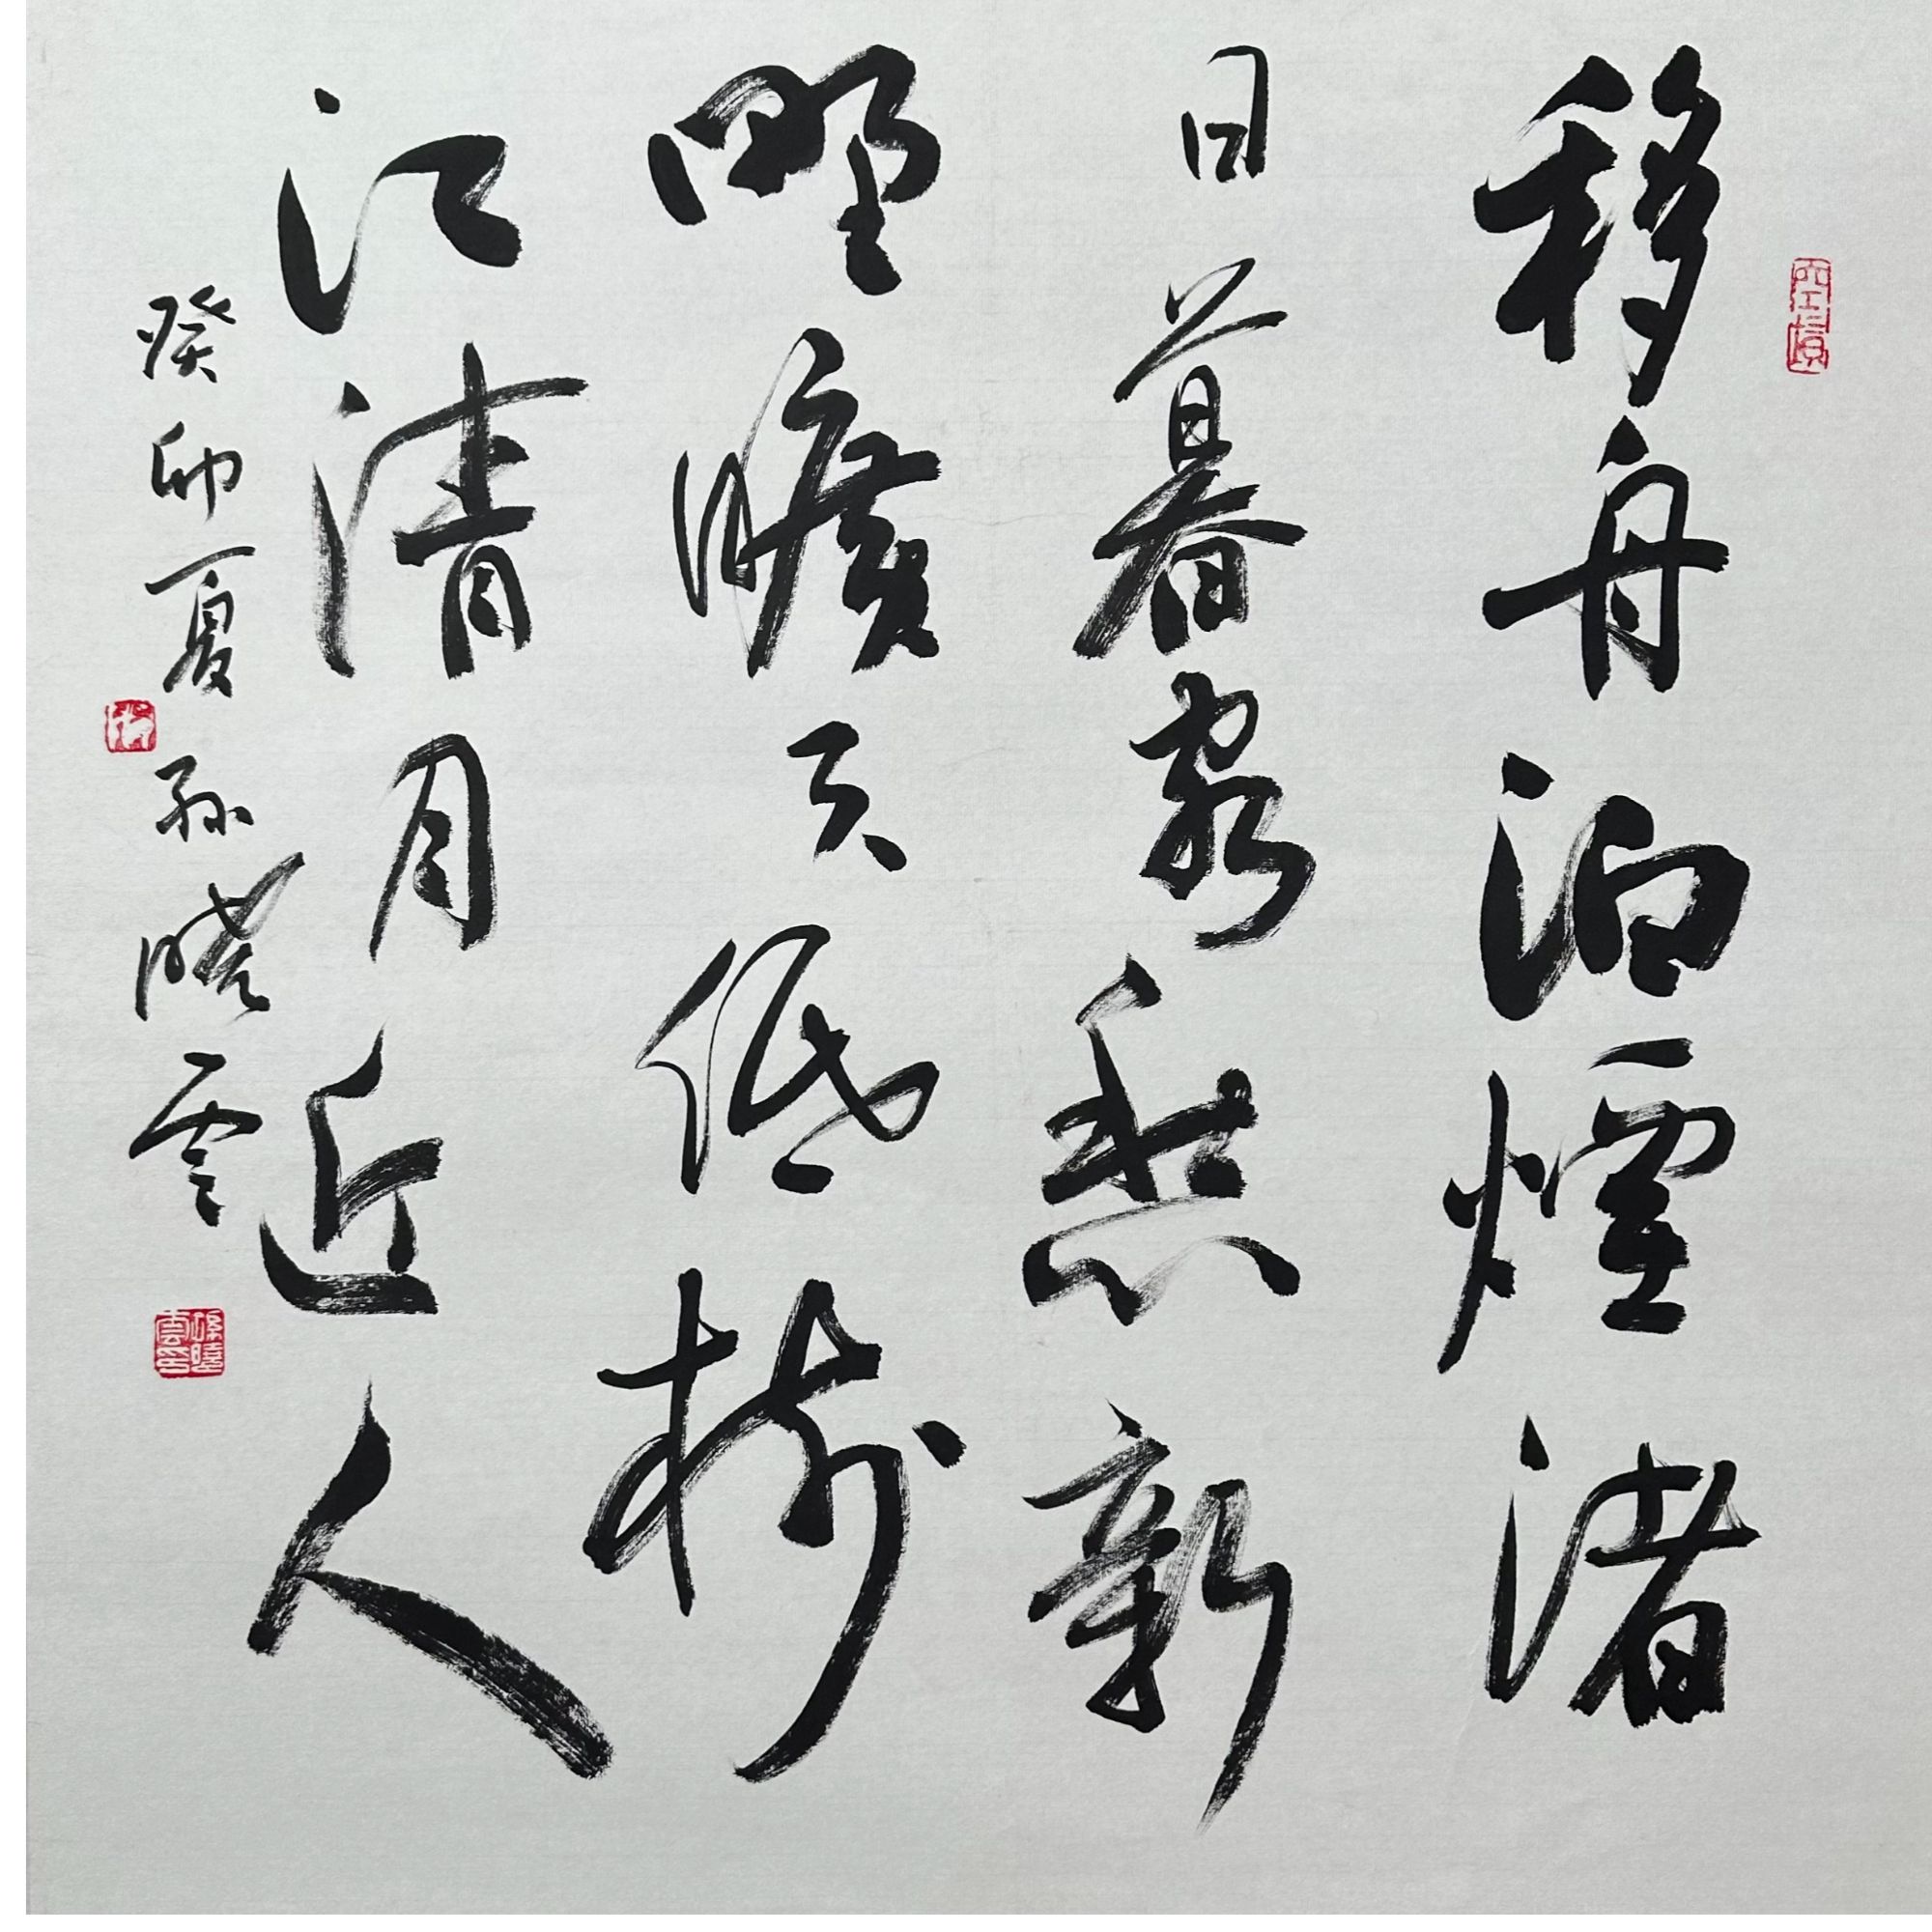 移舟泊煙渚
日暮客愁新
野曠天低樹
江清月近人
癸卯夏孫曉雲
孫曉雲印